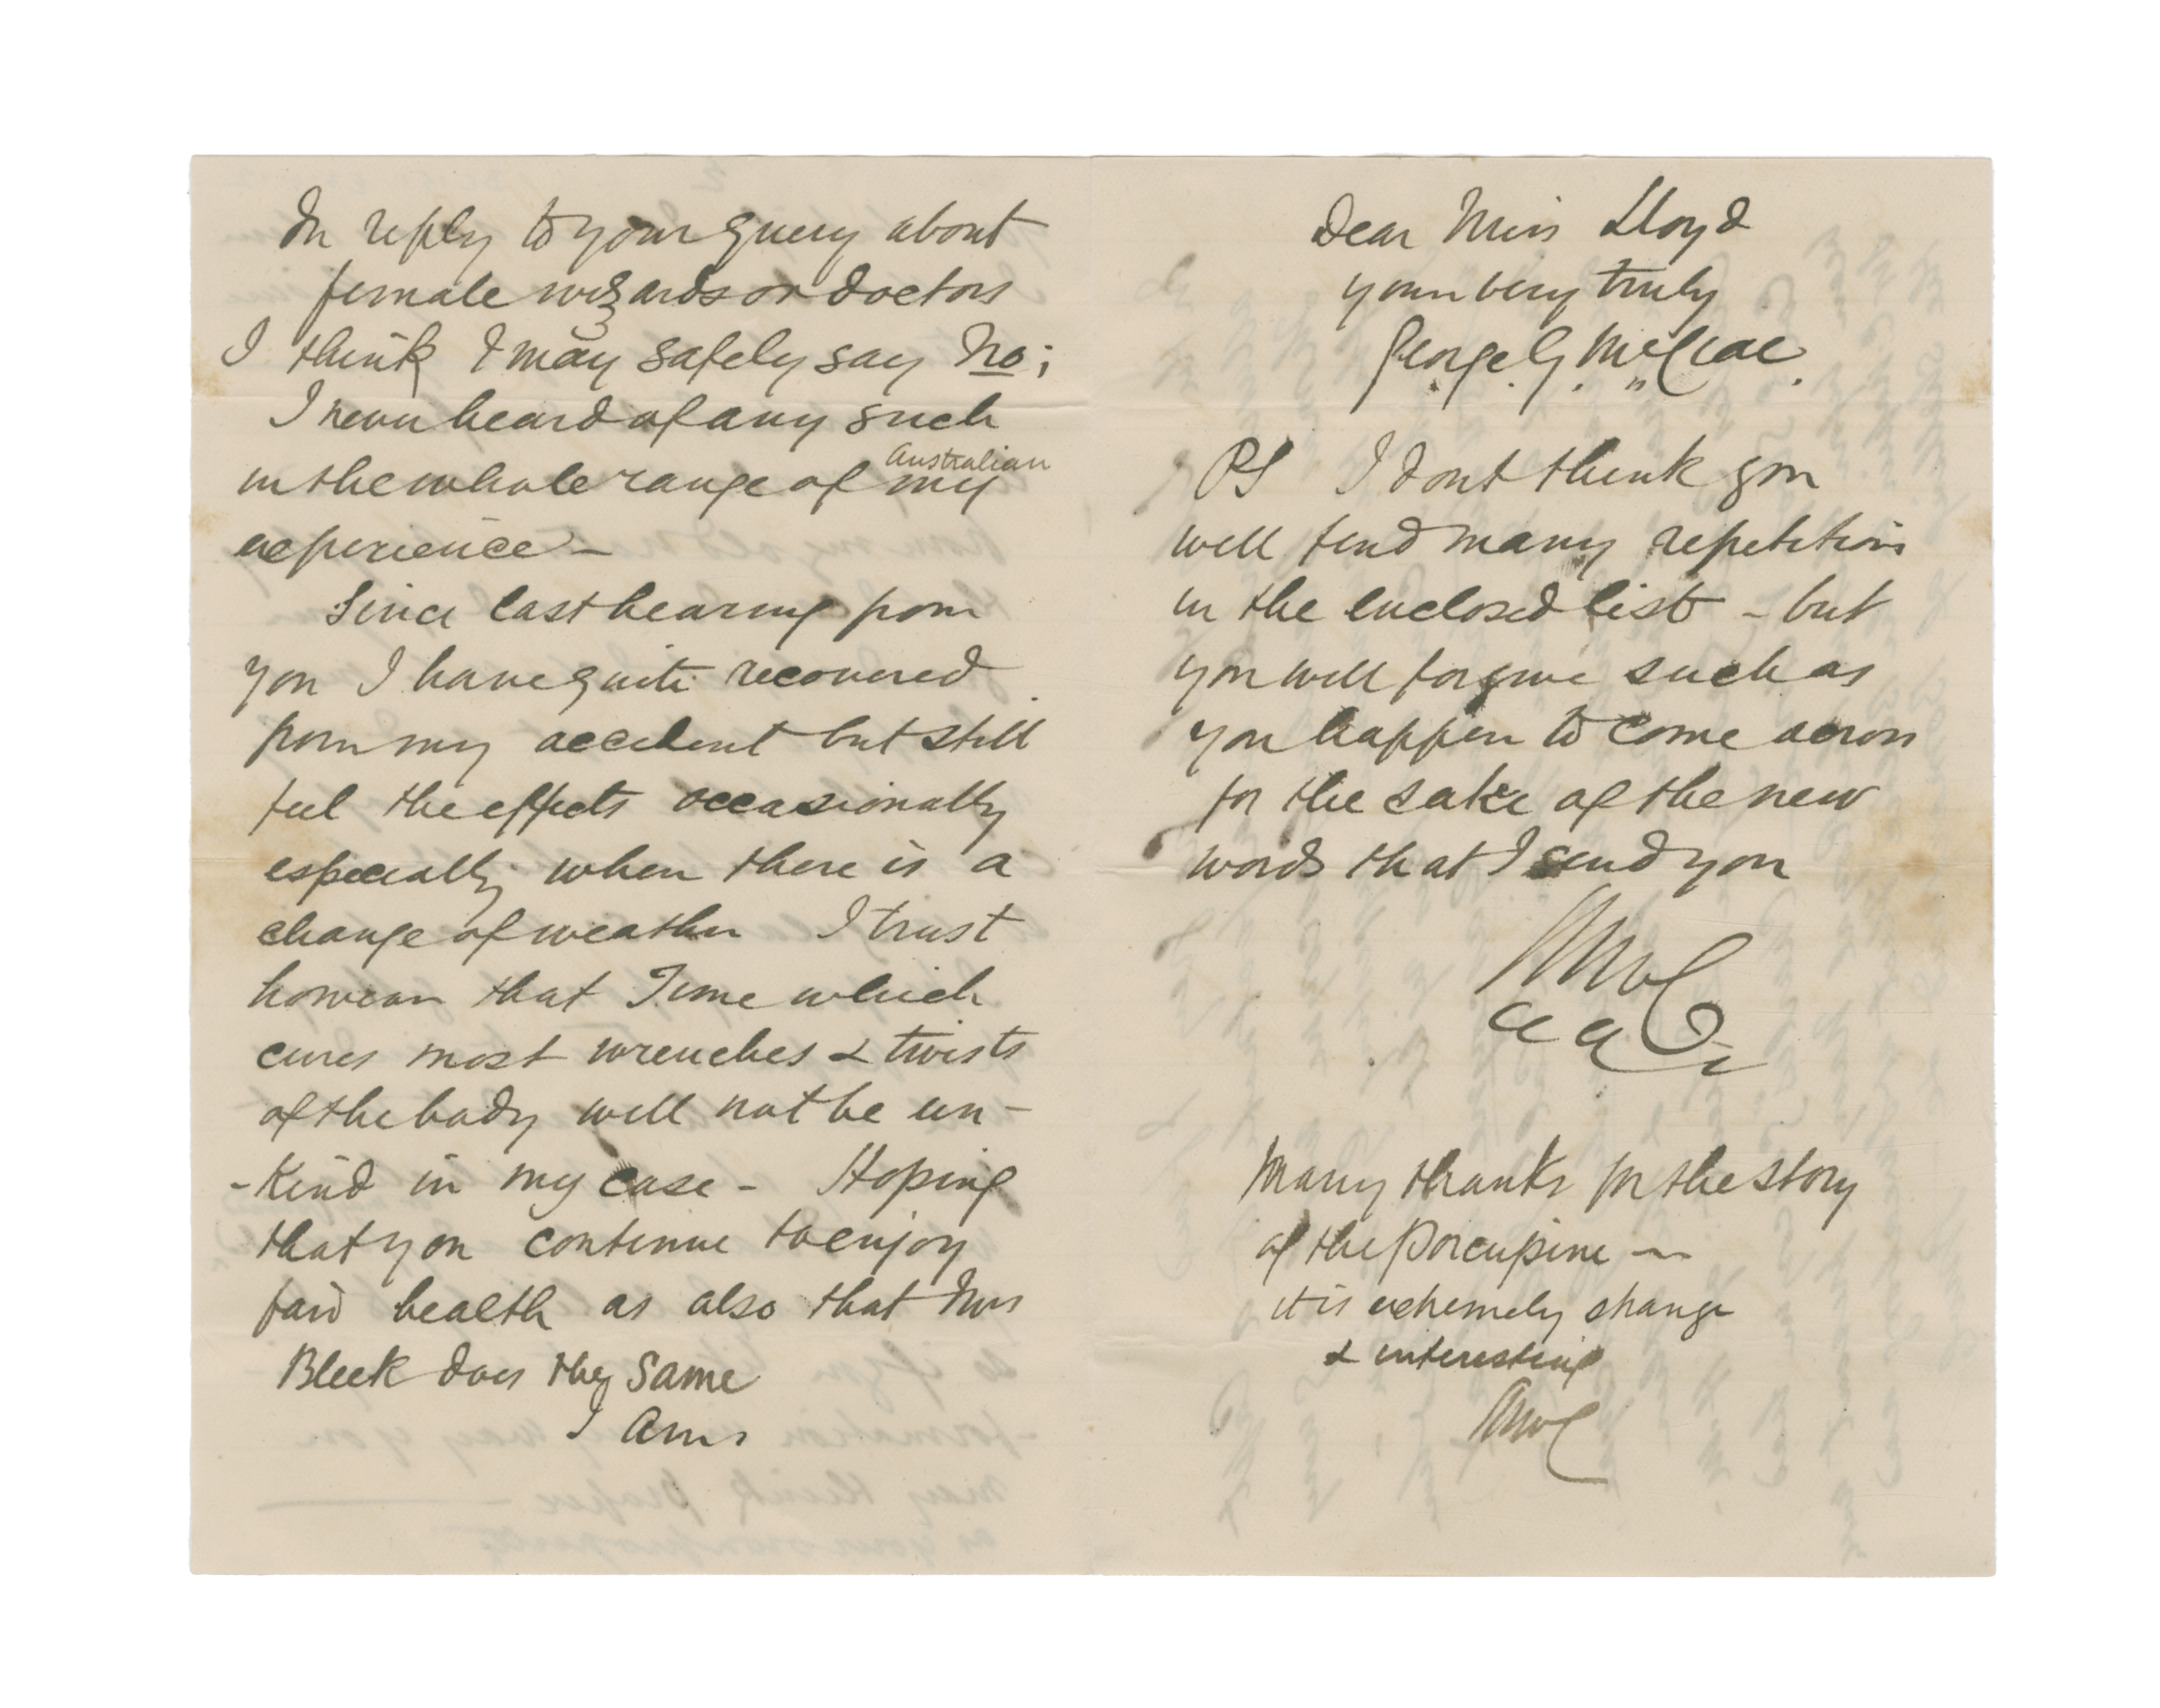 In reply to your query about
female wizards or doctors
I think I may safely say No;
I never heard of any such
Australian
in the whole range of my
experience –
Since last hearing from
you I have quite recovered
from my accident but still
feel the effects occasionally
especially when there is a
change of weather I trust
however that Time which
cures most wrenches & twists
of the body will not be un-
-kind in my case – Hoping
that you continue to enjoy
fair health as also that Mrs
Bleek does the same
I am
Dear Miss Lloyd
yours very truly
George G. McCrae.
PS I dont think you
will find many repetitions
in the enclosed list – but
you will forgive such as
you happen to come across
for the sake of the new
words that I send you
Many thanks for the story
of the Porcupine –
it is extremely strange
& interesting